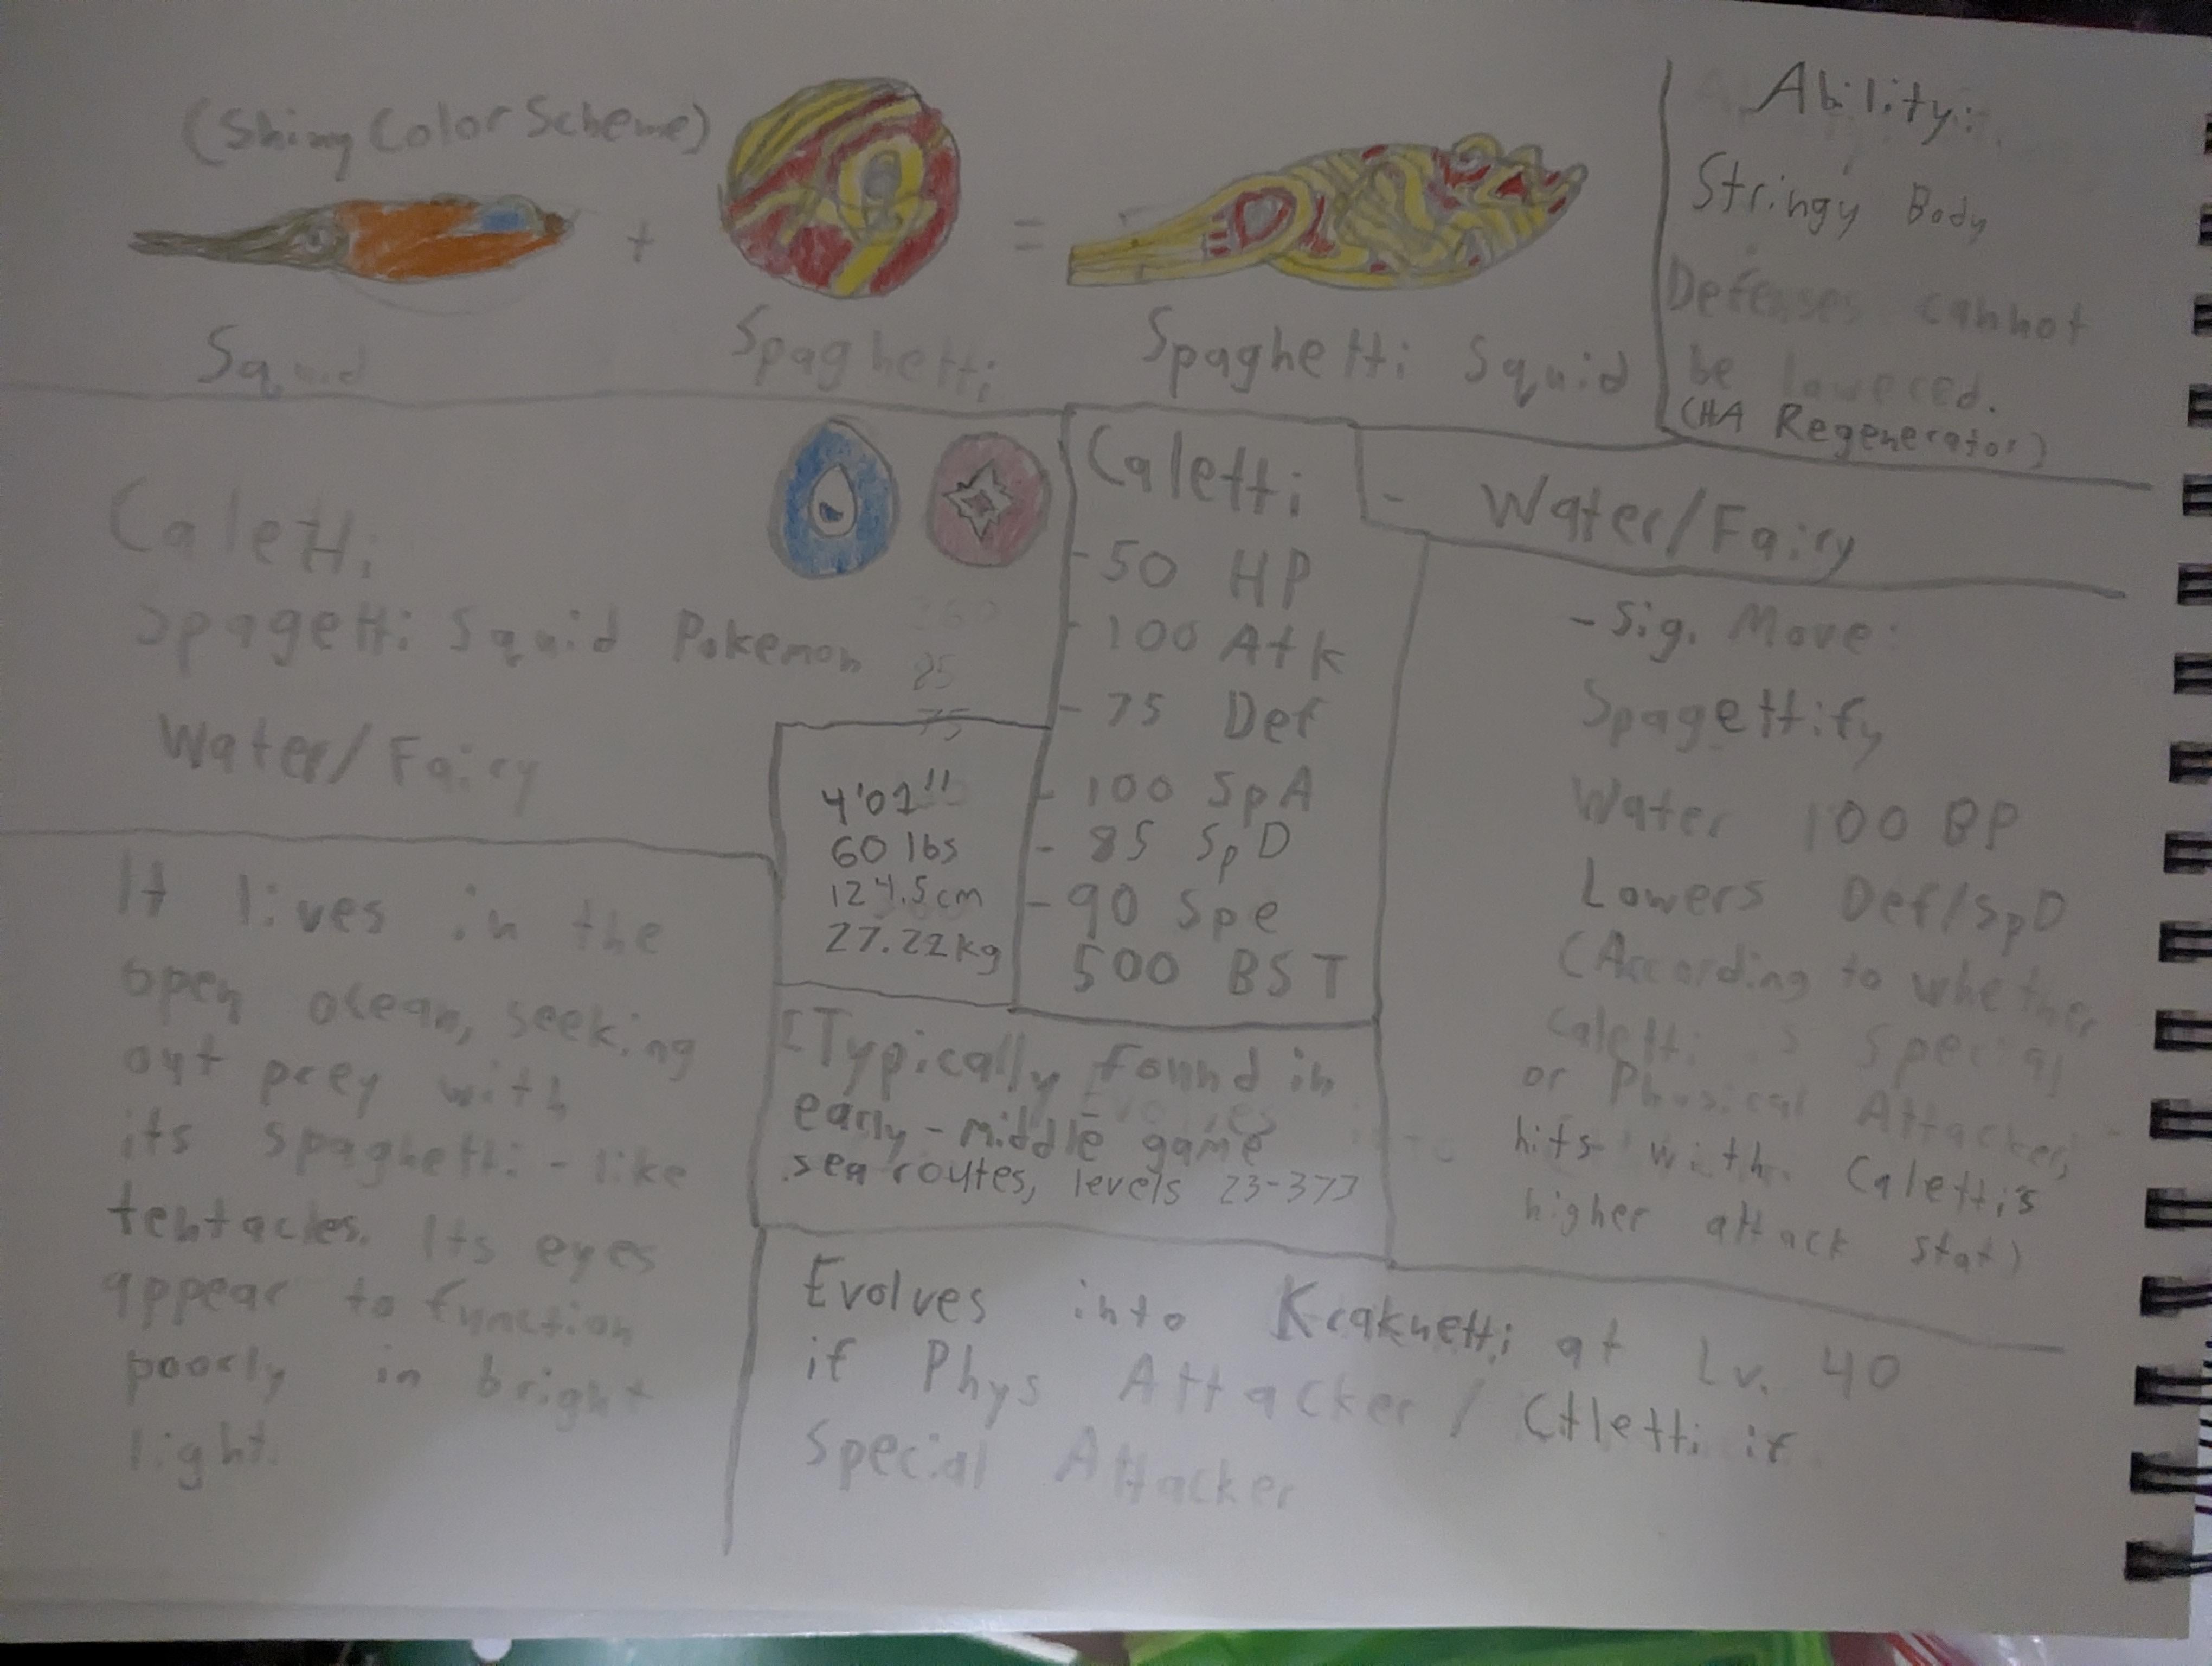 (Shiny Color Scheme)
+
=
Squid
Spaghetti
Spaghetti Squid
Ability:
Stringy Body
Defenses cannot
be lowered.
(HA Regenerator)
Caletti
Spagetti Squid Pokemon
Water/Fairy
85
75
4'01"
60 lbs
124.5cm
27.22kg
Caletti
- 50 HP
- 100 Atk
- 75 Def
- 100 SpA
- 85 SpD
- 90 Spe
500 BST
- Water/Fairy
- Sig. Move:
Spagettify
Water 100 BP
Lowers Def/SpD
(According to whether
Caletti is Special
or Physical Attacker,
hits with Caletti's
higher attack stat)
It lives in the
open ocean, seeking
out prey with
its spaghetti-like
tentacles. Its eyes
appear to function
poorly in bright
light.
[Typically found in
early-middle game
sea routes, levels
Evolves into Kraknetti at Lv. 40
if Phys Attacker / Ctletti if
Special Attacker